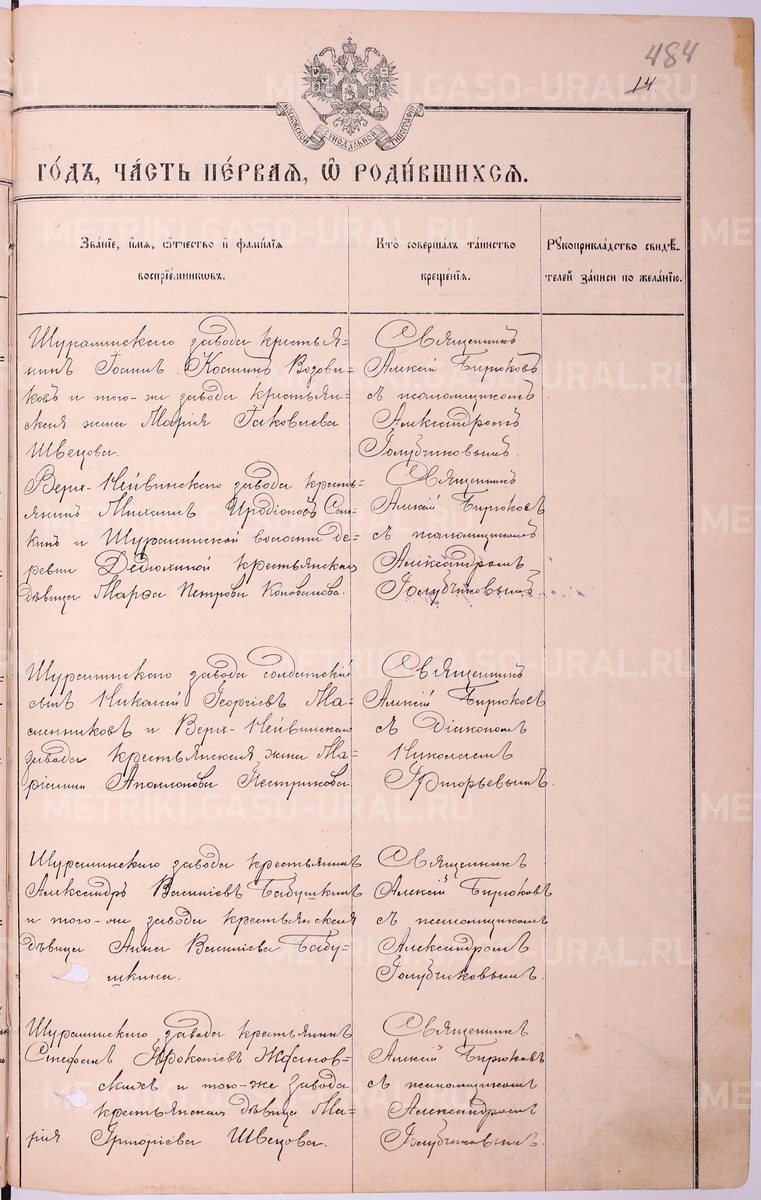 484
14
МОСКОВСКОЙ СѴНОДАЛЬНОЙ ТИПОГРАФІИ
ГО́ДЪ, ЧА́СТЬ ПЕ́РВАѦ, Ѡ҆ РОДИ́ВШИХСѦ.
Зва́нїе, и҆́мѧ, ѻ҆́тчество и҆ фами́лїѧ
воспрїе́мникѡвъ.
Кто̀ соверша́лъ та́инство
креще́нїѧ.
Рꙋкоприкла́дство свидѣ́-
телей за́писи по жела́нїю.
Шуралинскаго завода крестья-
нинъ Іоаннъ Косминъ Возови-
ковъ и того-же завода крестьян-
ская жена Марія Іаковлева
Швецова.
Священникъ
Алексій Бирюковъ
съ псаломщикомъ
Александромъ
Голубчиковымъ.
Верх-Нейвинскаго завода кресть-
янинъ Михаилъ Иродіоновъ
и Шуралинской волости де-
ревни Дедюхиной крестьянская
дѣвица Марѳа Петрова Коновалова.
Священникъ
Алексій Бирюковъ
съ псаломщикомъ
Александромъ
Голубчиковымъ
Шуралинскаго завода солдатскій
сынъ Николай Георгіевъ Ма-
сленниковъ и Верх-Нейвинскаго
завода крестьянская жена Ма-
ріанна Аполлонова Пестрикова.
Священникъ
Алексій Бирюковъ
съ Діакономъ
Николаемъ
Григорьевымъ.
Шуралинскаго завода крестьянинъ
Александръ Василіевъ Бабушкинъ
и того-же завода крестьянская
дѣвица Анна Василіева Бабу-
шкина.
Священникъ
Алексій Бирюковъ
съ псаломщикомъ
Александромъ
Голубчиковымъ.
Шуралинскаго завода крестьянинъ
Стефанъ Прокопіевъ
и того-же завода
крестьянская дѣвица Ма-
рія Григоріева Швецова.
Священникъ
Алексій Бирюковъ
съ псаломщикомъ
Александромъ
Голубчиковымъ.
METRIKI.GASO-URAL.RU